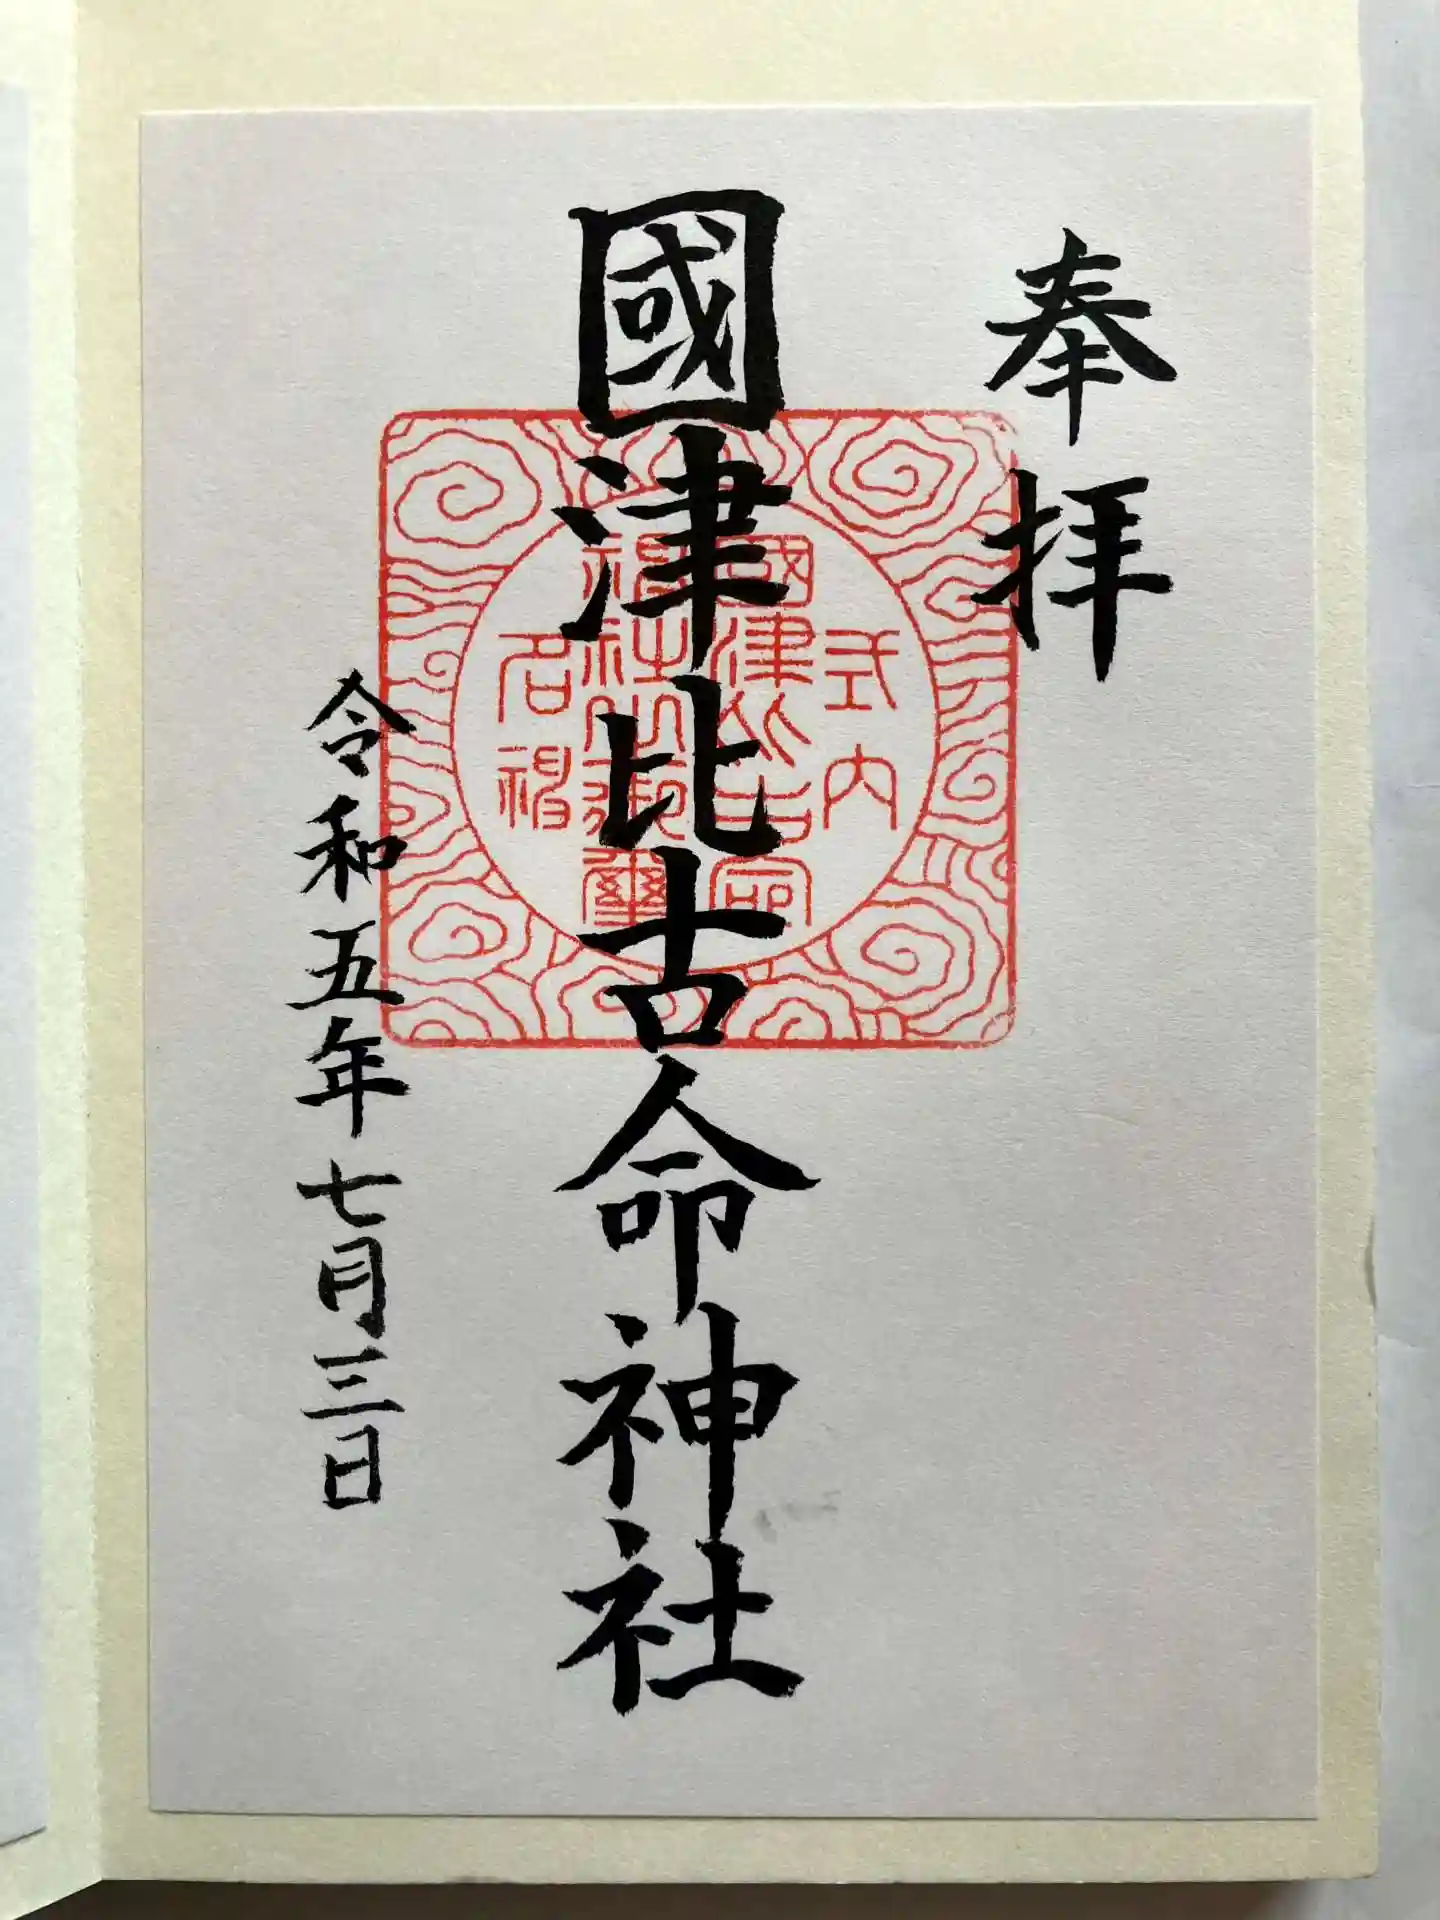 奉拝
國津比古命神社
令和五年七月三日
式内
國津比古命
神社之御璽
名神